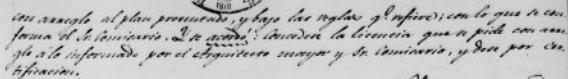 con arreglo al plan presentado, y bajo las reglas q.e refiere; con lo que se con
forma el Sr. Comisario. Y se acordó: conceder la licencia que se pide con arre
glo á lo informado por el Arquitecto mayor y Sr. Comisario, y dese por cer
tificacion.